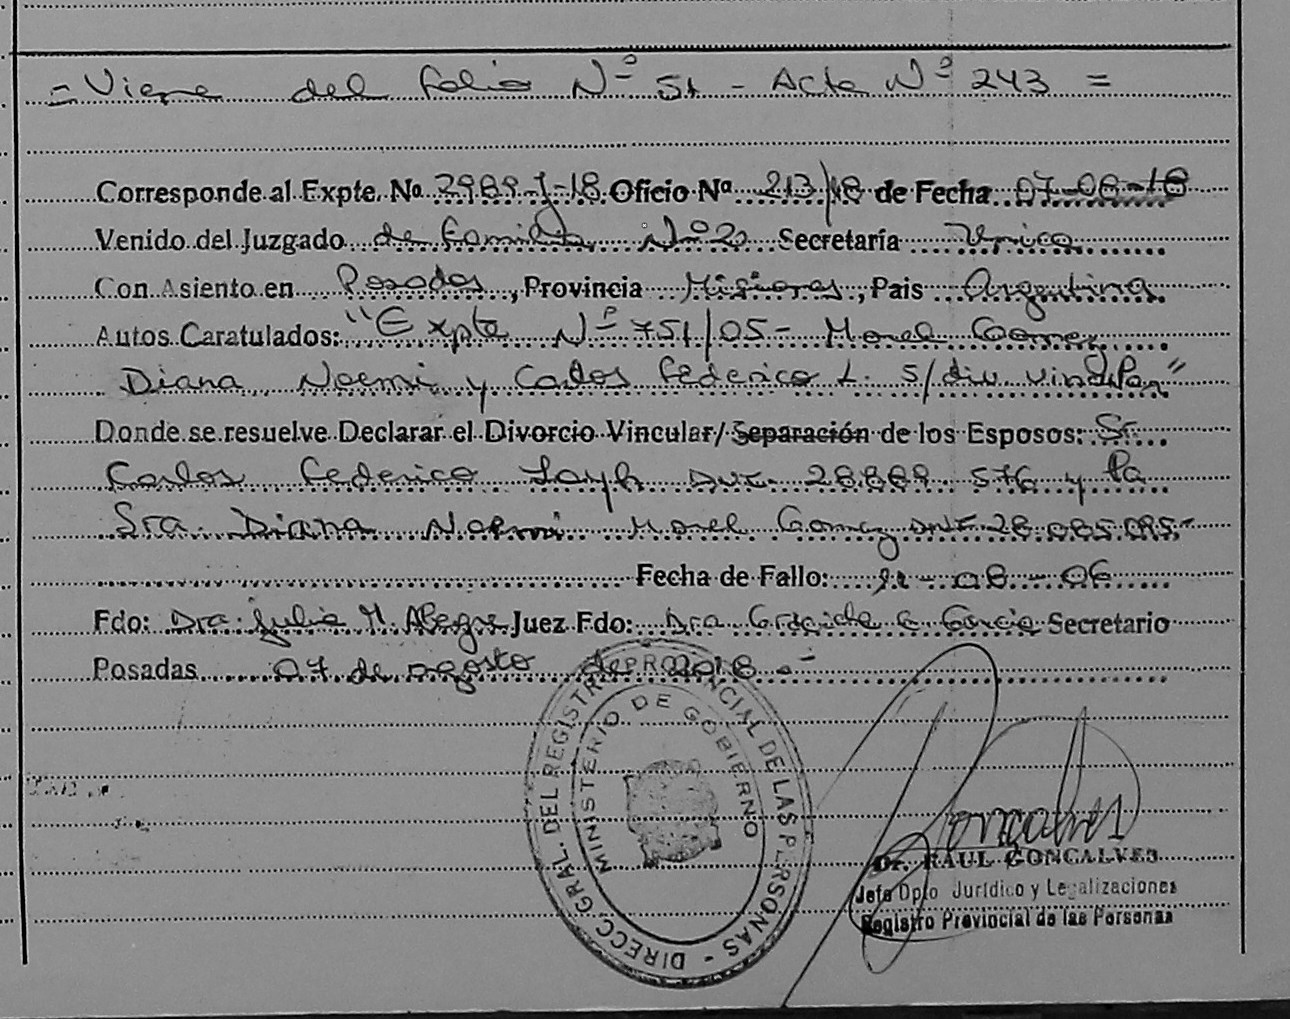 = Viene del folio Nº 51 - Acta Nº 243 =
Corresponde al Expte. Nº 2989-J-18 Oficio Nº 213/18 de Fecha 07-08-18
Venido del Juzgado de Familia Nº 2 Secretaría Unica
Con Asiento en Posadas, Provincia Misiones, Pais Argentina
Autos Caratulados: "Expte Nº 751/05 - Morel Gomez
Diana Noemi y Carlos Federico L. s/div. vinc
Donde se resuelve Declarar el Divorcio Vincular/ Separación de los Esposos: Sr.
Carlos Federico DNI. 28.889.576 y la
Sra. Diana Noemi Morel Gomez DNI 28.085.095-
Fecha de Fallo: -08-06
Fdo: Dra. Julia M. Alegre Juez Fdo: Dra Graciela Garcia Secretario
Posadas 07 de agosto de 2018.-
DIRECC. GRAL. DEL REGISTRO PROVINCIAL DE LAS PERSONAS -
MINISTERIO DE GOBIERNO
Goncalves
Dr. RAUL GONCALVES
Jefe Dpto Jurídico y Legalizaciones
Registro Provincial de las Personas